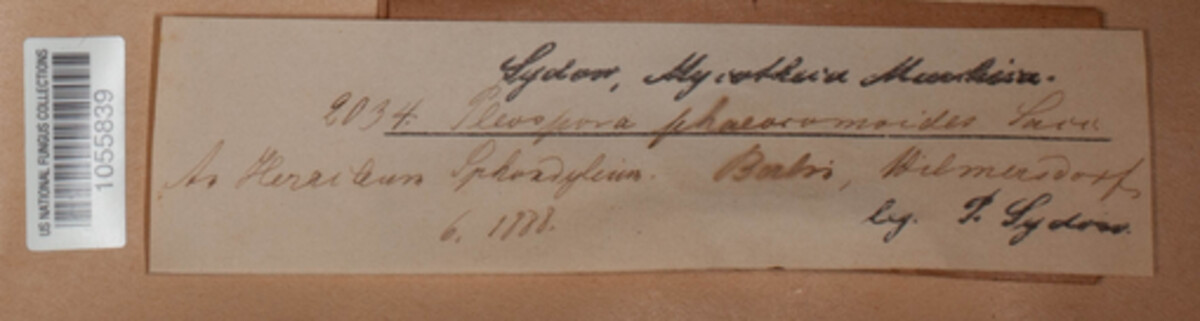 US NATIONAL FUNGUS COLLECTIONS
1055839
Sydow, Mycotheca Marchica.
2034. Pleospora phaeocomoides Sacc.
An Heracleum Sphondylium. Berlin, Wilmersdorf
6. 1888.
leg. P. Sydow.